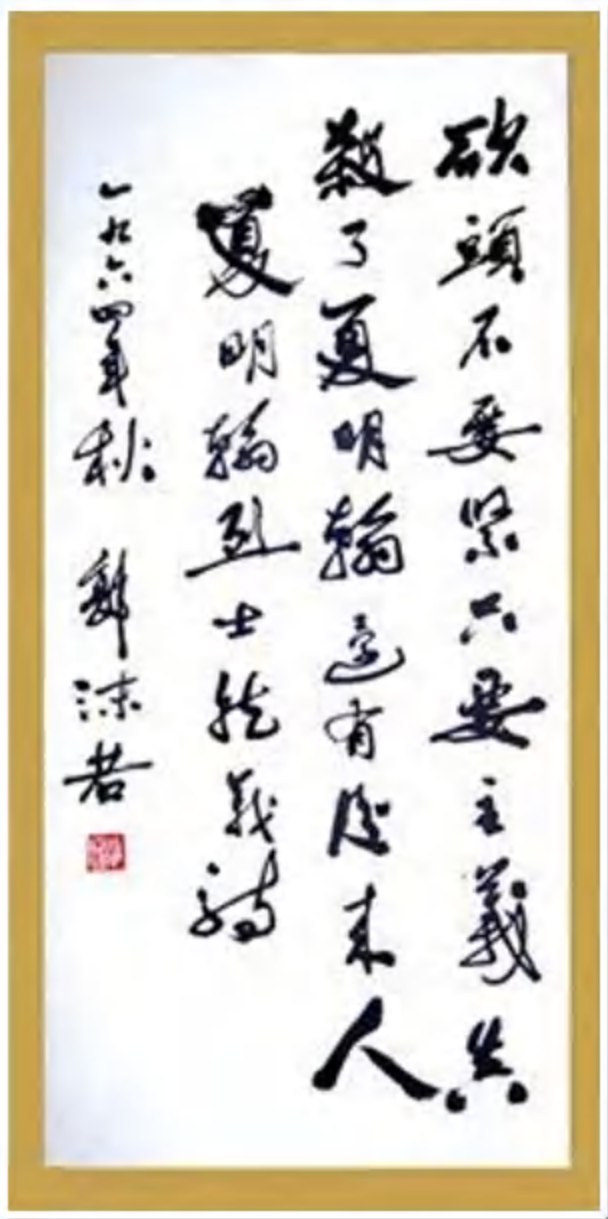 砍頭不要紧只要主義真
殺了夏明翰還有後来人
夏明翰烈士就義詩
一九六四年秋 郭沫若